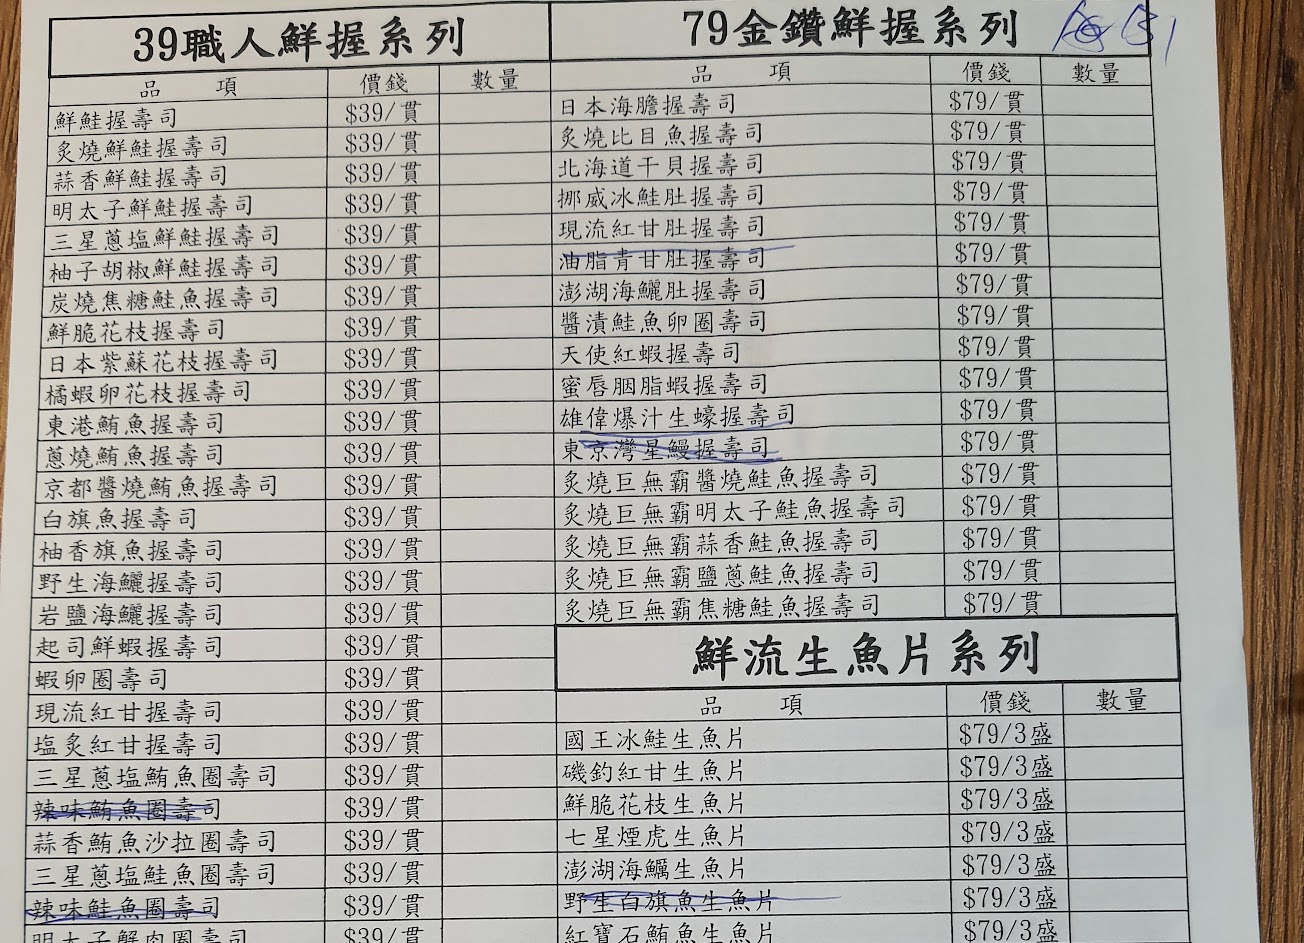 39職人鮮握系列
品 項 價錢 數量
鮮鮭握壽司 $39/貫
炙燒鮮鮭握壽司 $39/貫
蒜香鮮鮭握壽司 $39/貫
明太子鮮鮭握壽司 $39/貫
三星蔥塩鮮鮭握壽司 $39/貫
柚子胡椒鮮鮭握壽司 $39/貫
炭燒焦糖鮭魚握壽司 $39/貫
鮮脆花枝握壽司 $39/貫
日本紫蘇花枝握壽司 $39/貫
橘蝦卵花枝握壽司 $39/貫
東港鮪魚握壽司 $39/貫
蔥燒鮪魚握壽司 $39/貫
京都醬燒鮪魚握壽司 $39/貫
白旗魚握壽司 $39/貫
柚香旗魚握壽司 $39/貫
野生海鱺握壽司 $39/貫
岩鹽海鱺握壽司 $39/貫
起司鮮蝦握壽司 $39/貫
蝦卵圈壽司 $39/貫
現流紅甘握壽司 $39/貫
塩炙紅甘握壽司 $39/貫
三星蔥塩鮪魚圈壽司 $39/貫
辣味鮪魚圈壽司 $39/貫
蒜香鮪魚沙拉圈壽司 $39/貫
三星蔥塩鮭魚圈壽司 $39/貫
辣味鮭魚圈壽司 $39/貫
明太子蟹肉圈壽司 $39/貫
79金鑽鮮握系列
品 項 價錢 數量
日本海膽握壽司 $79/貫
炙燒比目魚握壽司 $79/貫
北海道干貝握壽司 $79/貫
挪威冰鮭肚握壽司 $79/貫
現流紅甘肚握壽司 $79/貫
油脂青甘肚握壽司 $79/貫
澎湖海鱺肚握壽司 $79/貫
醬漬鮭魚卵圈壽司 $79/貫
天使紅蝦握壽司 $79/貫
蜜唇胭脂蝦握壽司 $79/貫
雄偉爆汁生蠔握壽司 $79/貫
東京灣星鰻握壽司 $79/貫
炙燒巨無霸醬燒鮭魚握壽司 $79/貫
炙燒巨無霸明太子鮭魚握壽司 $79/貫
炙燒巨無霸蒜香鮭魚握壽司 $79/貫
炙燒巨無霸鹽蔥鮭魚握壽司 $79/貫
炙燒巨無霸焦糖鮭魚握壽司 $79/貫
鮮流生魚片系列
品 項 價錢 數量
國王冰鮭生魚片 $79/3盛
磯釣紅甘生魚片 $79/3盛
鮮脆花枝生魚片 $79/3盛
七星煙虎生魚片 $79/3盛
澎湖海鱺生魚片 $79/3盛
野生白旗魚生魚片 $79/3盛
紅寶石鮪魚生魚片 $79/3盛